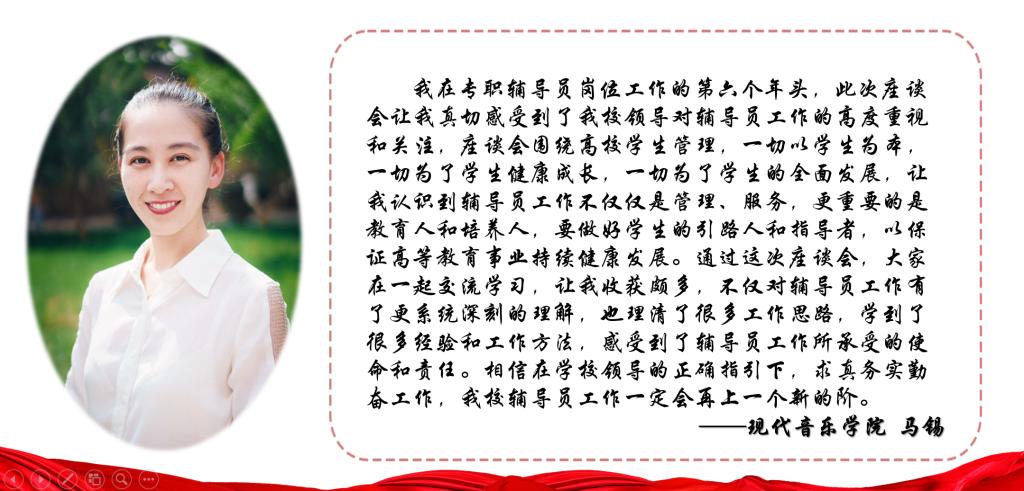 我在专职辅导员岗位工作的第六个年头，此次座谈
会让我真切感受到了我校领导对辅导员工作的高度重视
和关注，座谈会围绕高校学生管理，一切以学生为本，
一切为了学生健康成长，一切为了学生的全面发展，让
我认识到辅导员工作不仅仅是管理、服务，更重要的是
教育人和培养人，要做好学生的引路人和指导者，以保
证高等教育事业持续健康发展。通过这次座谈会，大家
在一起交流学习，让我收获颇多，不仅对辅导员工作有
了更系统深刻的理解，也理清了很多工作思路，学到了
很多经验和工作方法，感受到了辅导员工作所承受的使
命和责任。相信在学校领导的正确指引下，求真务实勤
奋工作，我校辅导员工作一定会再上一个新的阶。
——现代音乐学院 马锡